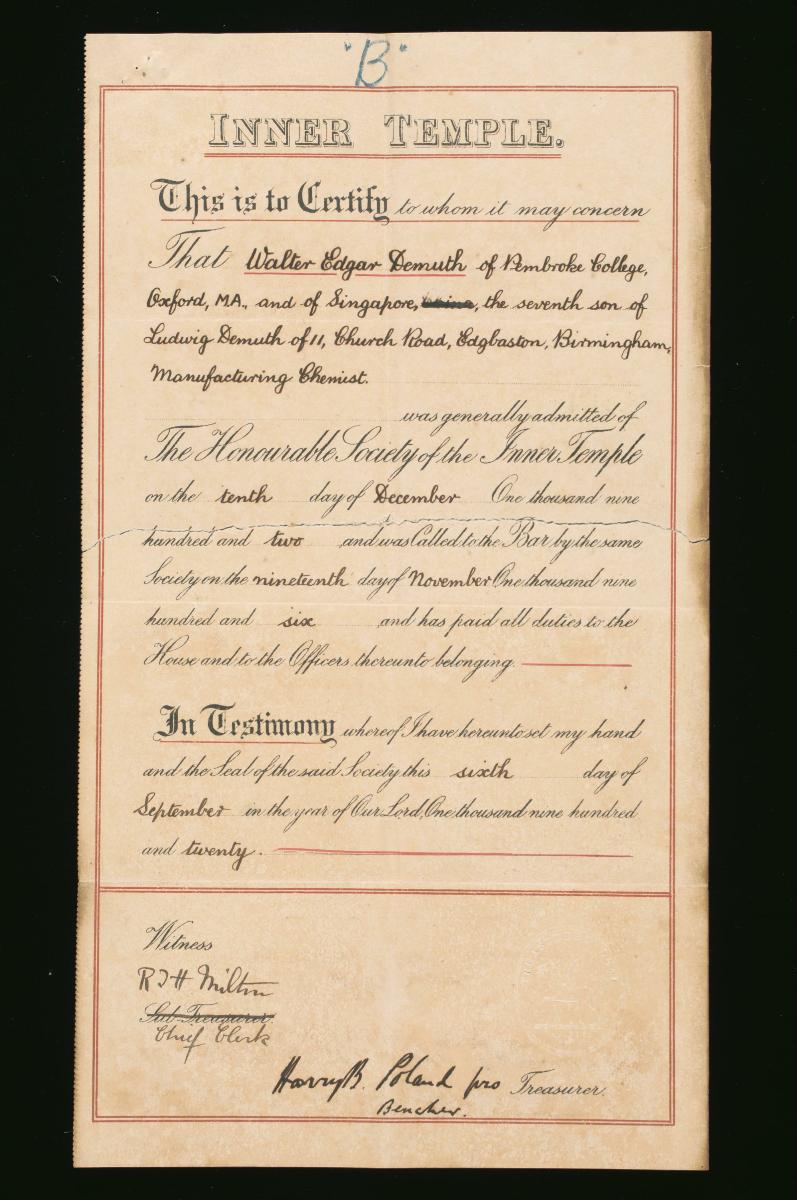 "B"
INNER TEMPLE.
This is to Certify to whom it may concern
That Walter Edgar Demuth of Pembroke College,
Oxford, M.A., and of Singapore, , the seventh son of
Ludwig Demuth of 11, Church Road, Edgbaston, Birmingham,
Manufacturing Chemist.
was generally admitted of
The Honourable Society of the Inner Temple
on the tenth day of December One thousand nine
hundred and two and was Called to the Bar by the same
Society on the nineteenth day of November One thousand nine
hundred and six and has paid all duties to the
House and to the Officers thereunto belonging.
In Testimony whereof I have hereunto set my hand
and the Seal of the said Society this sixth day of
September in the year of Our Lord, One thousand nine hundred
and twenty.
Witness
Milton
Sub-Treasurer.
Chief Clerk
Harry B. Poland pro Treasurer.
Bencher.